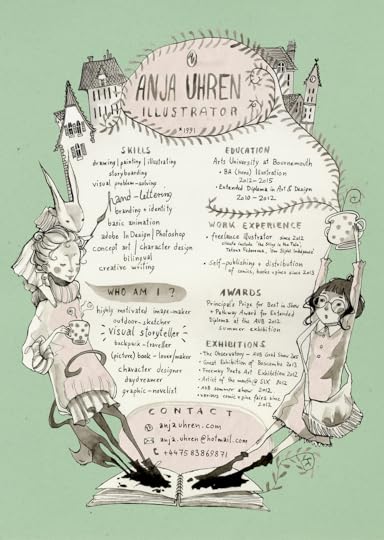 ANJA UHREN
ILLUSTRATOR
*1991
SKILLS
drawing | painting | illustrating
storyboarding
visual problem-solving
hand-lettering
branding + identity
basic animation
adobe InDesign | Photoshop
concept art / character design
bilingual
creative writing
WHO AM I ?
highly motivated image-maker
outdoor-sketcher
visual storyteller
backpack-traveller
(picture) book-lover/maker
character designer
daydreamer
graphic-novelist
EDUCATION
Arts University at Bournemouth
• BA (hons) Illustration
2012-2015
• Extended Diploma in Art & Design
2010-2012
WORK EXPERIENCE
• freelance illustrator since 2012
clients include
• self-publishing + distribution
of comics, books + zines since 2013
AWARDS
Principal's Prize for Best in Show
• Pathway Award for Extended
Diploma at the AUB 2012
summer exhibition
EXHIBITIONS
• The Observatory - AUB Grad Show 2015
• Guest Exhibition of Boscombe 2013
• Poetry Art Exhibition 2012
• Artist of the month @ 2012
• AUB summer show 2012
• various comic + zine fairs since
2012
CONTACT
anjauhren.com
anja.uhren@hotmail.com
+447583869871